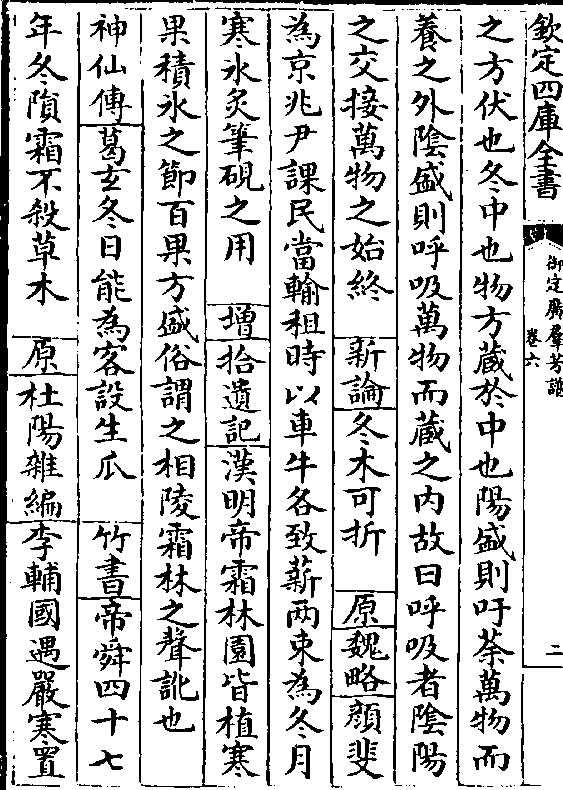 欽定四庫全書
御定廣羣芳譜
卷六
二
之方伏也冬中也物方藏於中也陽盛則吁荼萬物而
養之外陰盛則呼吸萬物而藏之内故曰呼吸者陰陽
之交接萬物之始終　新論冬木可折　原魏略顔斐
為京兆尹課民當輸租時以車牛各致薪兩束為冬月
寒氷炙筆硯之用　增拾遺記漢明帝霜林園皆植寒
果積氷之節百果方盛俗謂之相陵霜林之聲訛也
神仙傳葛玄冬日能為客設生瓜　竹書帝舜四十七
年冬隕霜不殺草木　原杜陽雜編李輔國遇嚴寒置